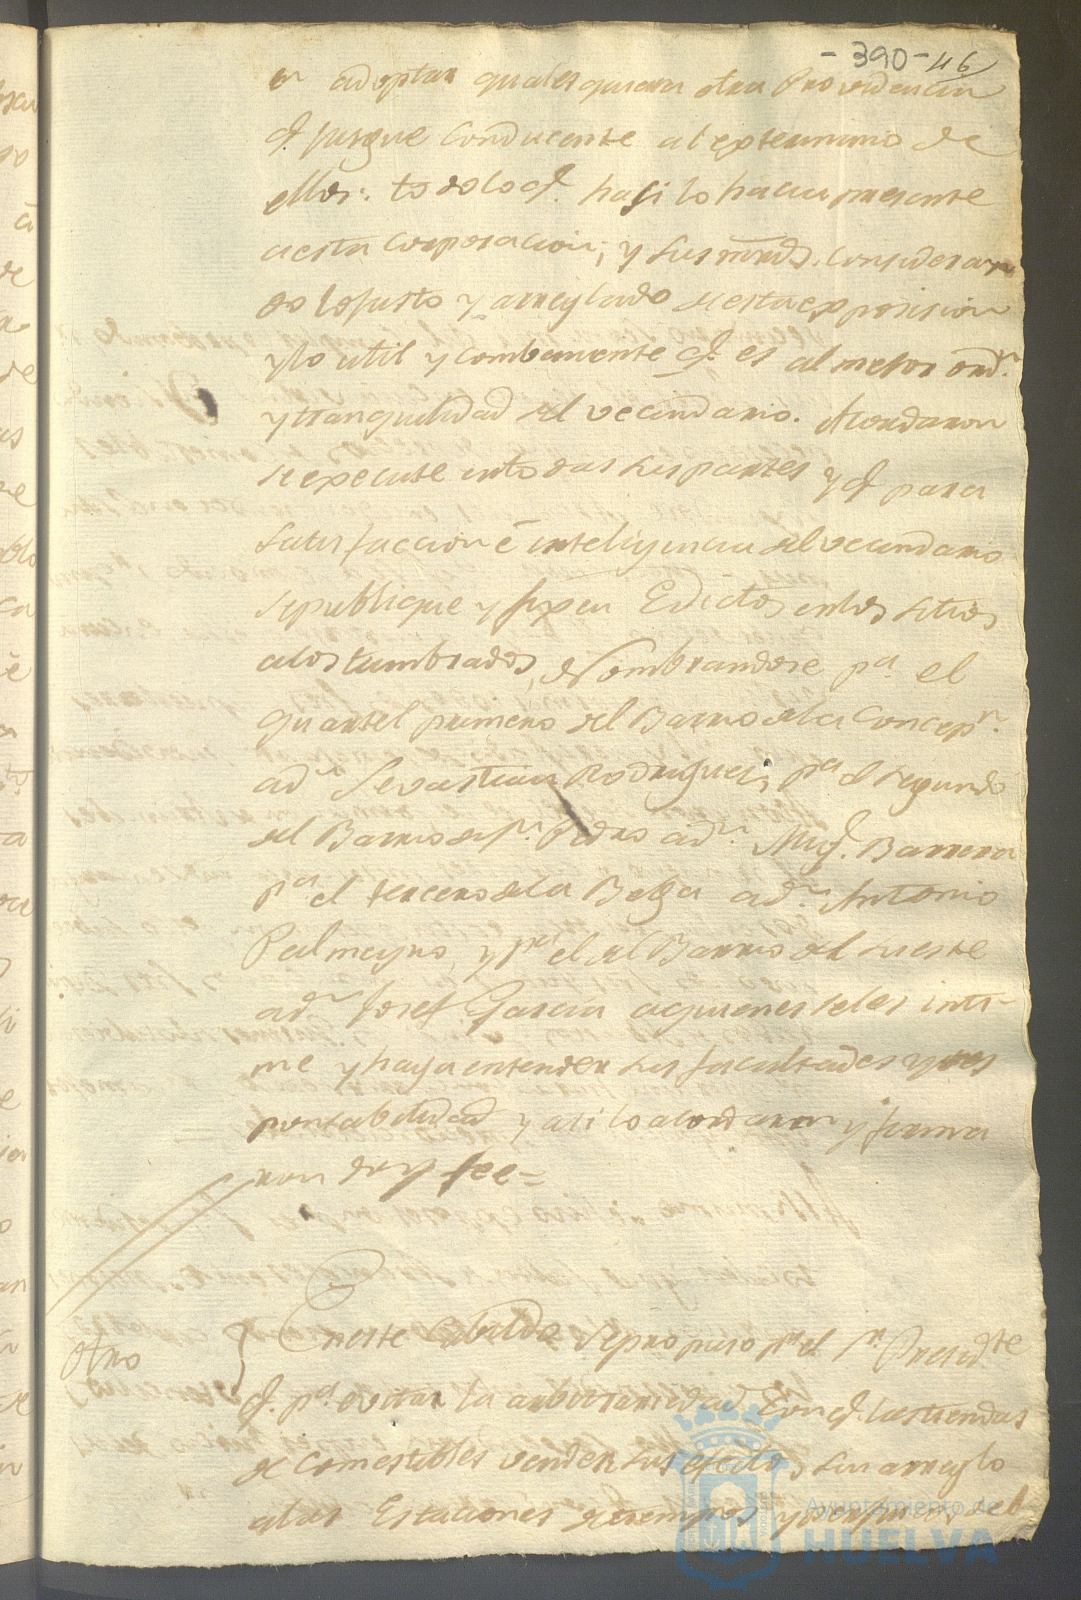 - 390 - 46
en adoptar qualesquiera otra Providencia
q.e jusgue conducente al exterminio de
ellos: todo lo q.e hasi lo hacia presente
a esta Corporacion; y sus mrds. consideran
do lo justo y arreglado de esta exposision
y lo util y combeniente q.e es al mejor ord.n
y tranquilidad del vecindario. Acordaron
se execute en todas sus partes y q.e para
satisfaccion é inteligencia del vecindario
se publique y fixen Edictos en los sitios
acostumbrados, Nombrandose p.a el
quartel primero del Barrio de la Concep.n
a D.n Sevastian Rodriguez, p.a el segundo
del Barrio de S.n Pedro a D.n Mig.l Barrera
p.a el tercero de la Bega a D.n Antonio
Palmeyro, y p.a el del Barrio del
a D.n Josef Garcia a quienes se les inti-
me y haga entender sus facultades y res
ponsabilidad y asi lo acordaron y firma
ron doy fee =
Otro
En este Cabildo se propuso p.r el S.r Presid.te
q.e p.a evitar la arbitrariedad con q.e las tiendas
de comestibles venden sus efectos, sin arreglo
a las Estaciones de tiempos y del
Ayuntamiento de
HUELVA